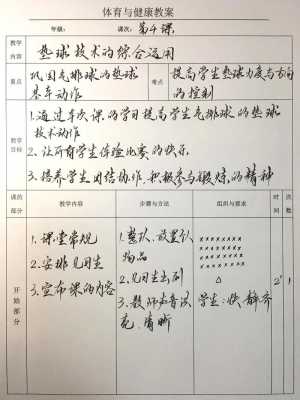 体育与健康教案
年级: 课次: 第4课
教学内容
垫球技术的综合运用
重点
巩固气排球的垫球
基本动作
难点
提高学生垫球力度与方向
的控制
教学目标
1.通过本次课的学习提高学生气排球的垫球
技术动作
2.让所有学生体验比赛的快乐
3.培养学生团结协作,积极参与锻炼的精神
课的部分
教学内容
步骤与方法
组织与要求
时间
次数
开始部分
1.课堂常规
2.安排见习生
3.宣布课的内容
1.整队、放置队
物品
2.见习生出列
3.教师声音洪
亮、清晰
xxxxxxxx
xxxxxxxx
xxxxxxxx
xxxxxxxx
△
学生:快、静、齐
2'
1